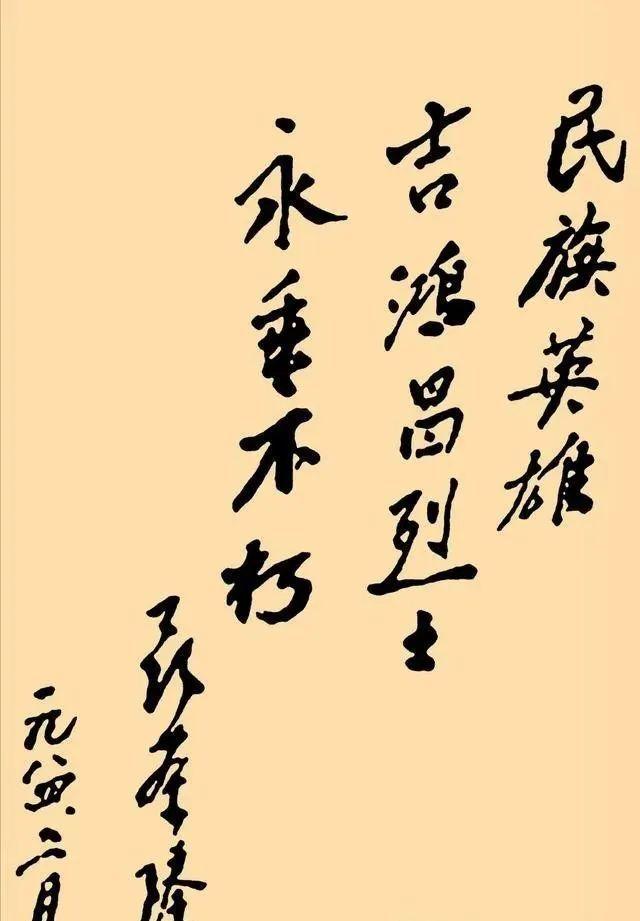 民族英雄
吉鸿昌烈士
永垂不朽
聂荣臻
一九八四.二月